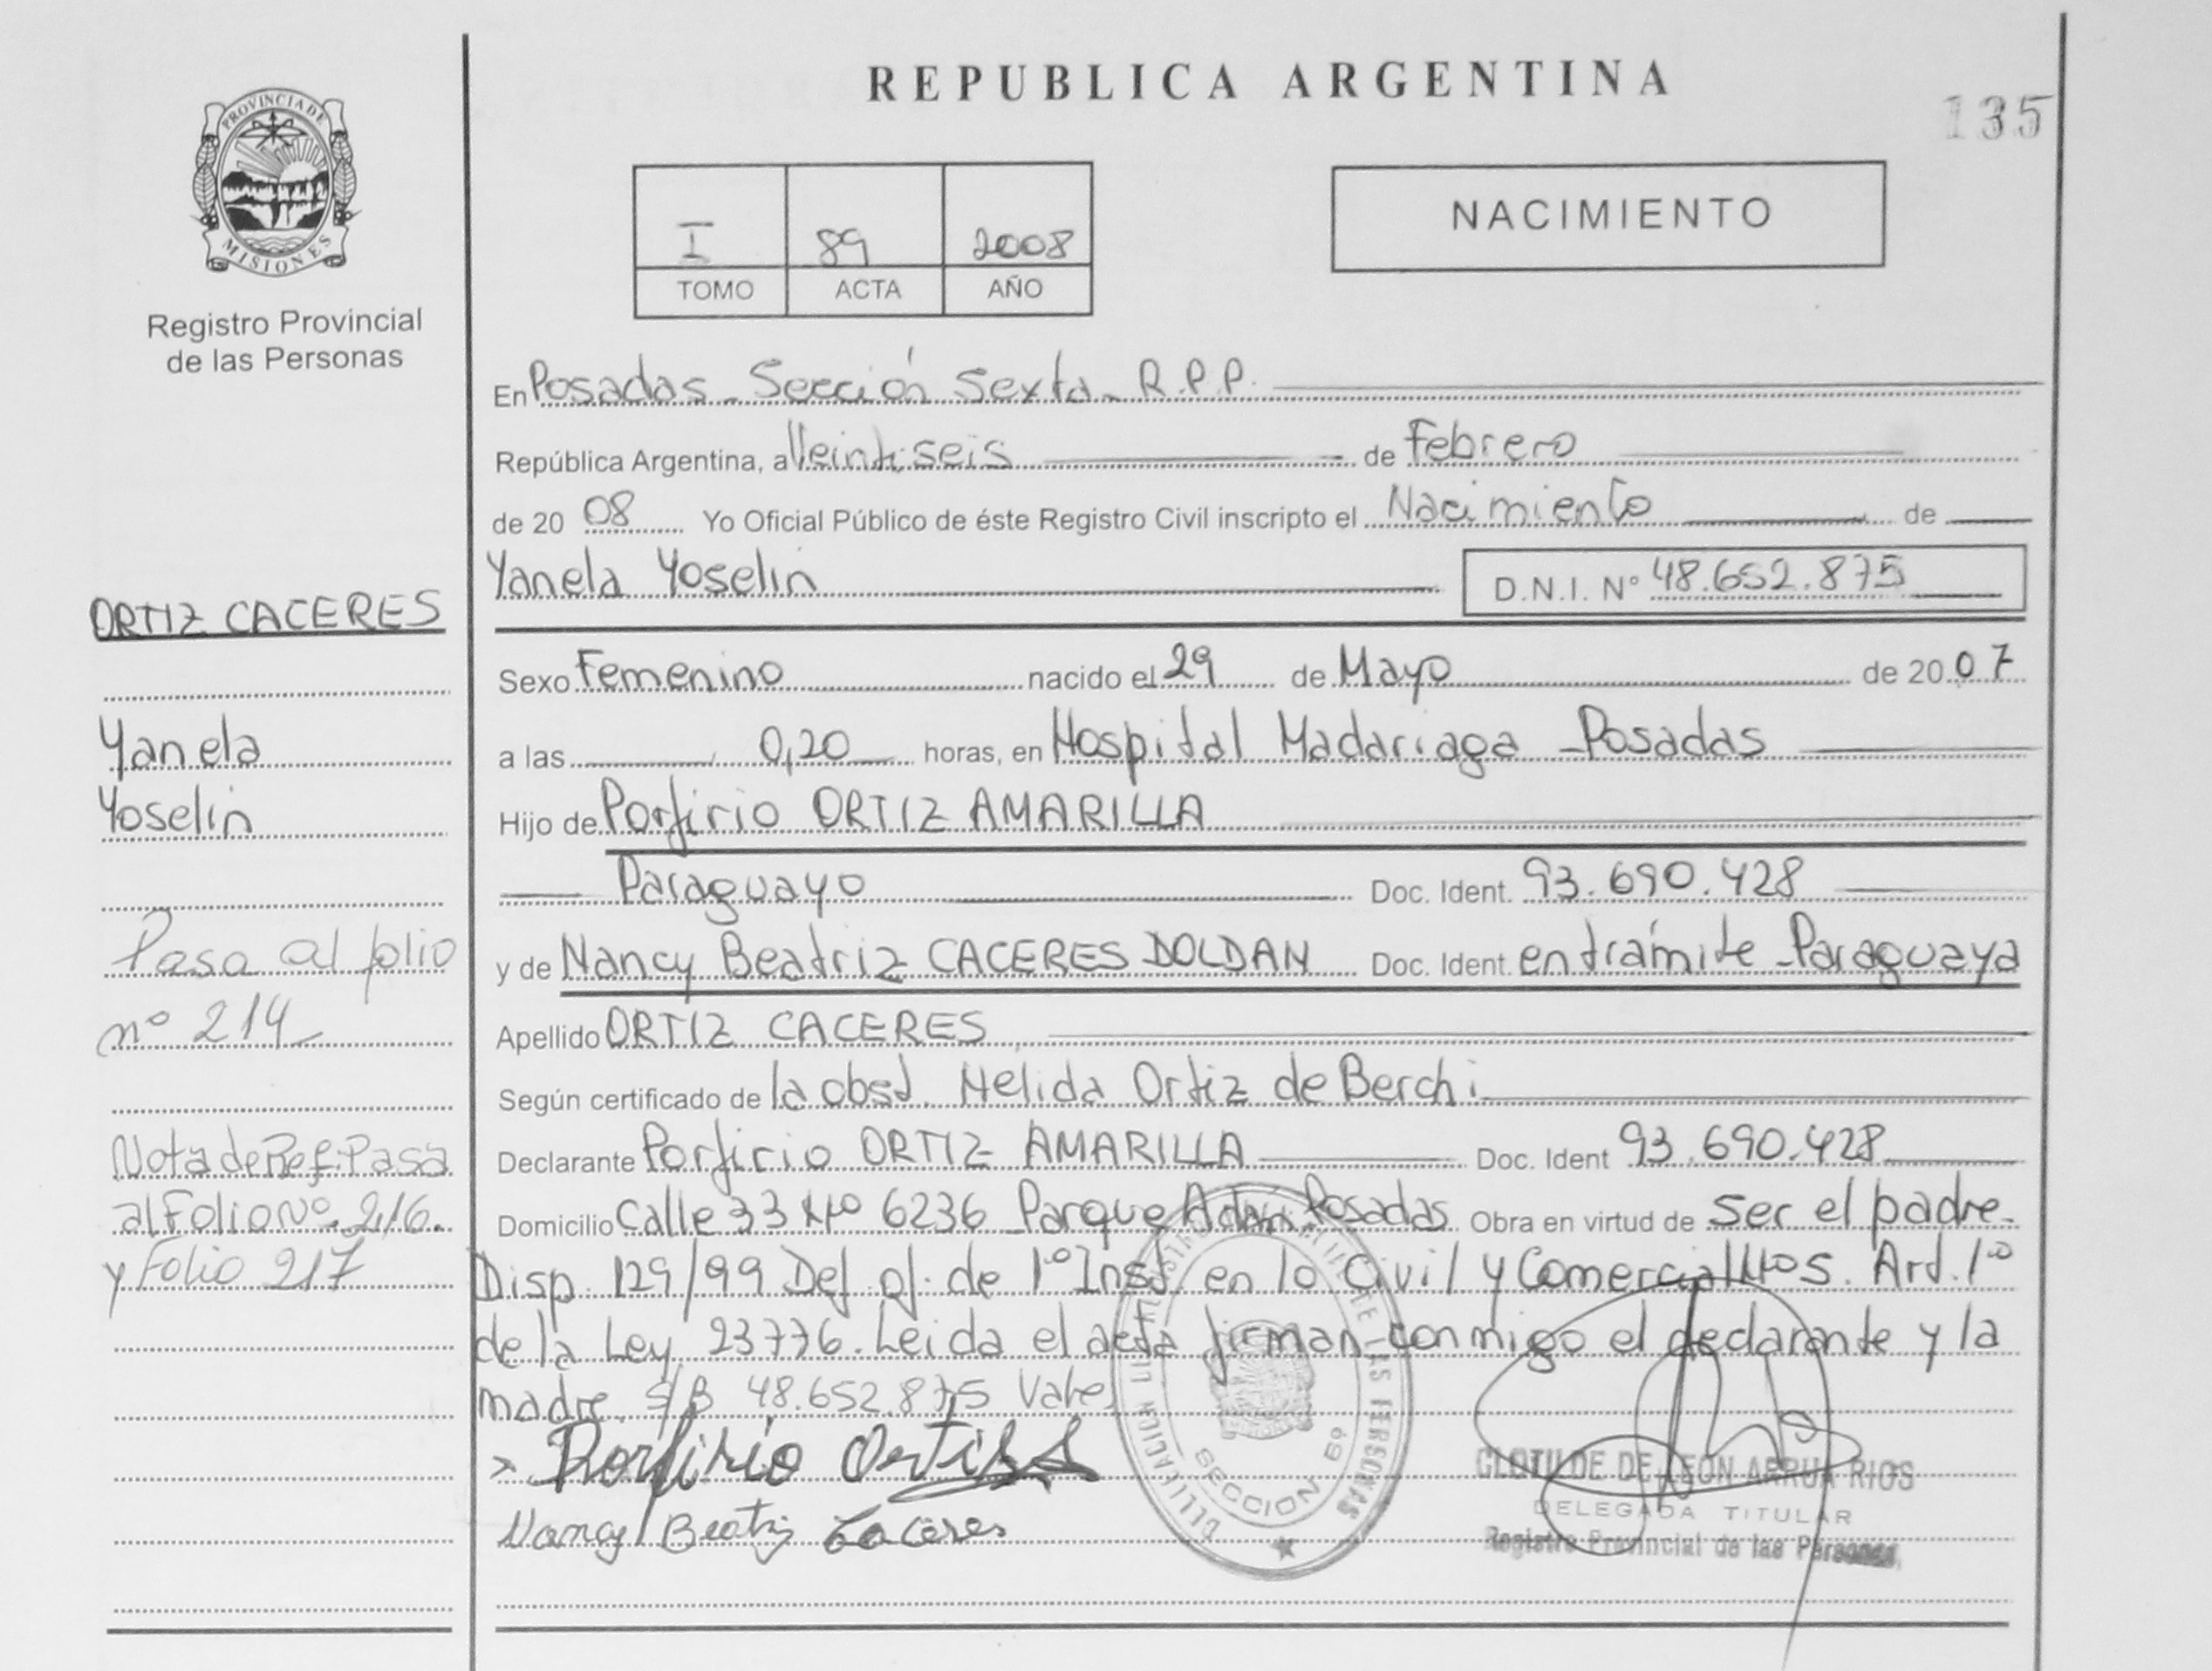 REPUBLICA ARGENTINA
135
PROVINCIA DE
MISIONES
Registro Provincial
de las Personas
I 89 2008
TOMO ACTA AÑO
NACIMIENTO
En Posadas - Sección Sexta - R.P.P.
República Argentina, a Veintiseis de Febrero
de 20 08 Yo Oficial Público de éste Registro Civil inscripto el Nacimiento de
Yanela Yoselin D.N.I. Nº 48.652.875
Sexo Femenino nacido el 29 de Mayo de 20 07
a las 0,20 horas, en Hospital Madariaga - Posadas
Hijo de Porfirio ORTIZ AMARILLA
Paraguayo Doc. Ident. 93.690.428
y de Nancy Beatriz CACERES DOLDAN Doc. Ident. en trámite - Paraguaya
Apellido ORTIZ CACERES
Según certificado de la obst. Nelida Ortiz de Berchi
Declarante Porfirio ORTIZ AMARILLA Doc. Ident 93.690.428
Domicilio Calle 33 Nº 6236 Parque Adam Posadas Obra en virtud de ser el padre.
Disp. 129/99 Def of. de 1º Inst. en lo Civil y Comercial Nº 5. Art. 1º
de la Ley 23776. Leida el acta firman conmigo el declarante y la
madre. S/B 48.652.875 Vale
Porfirio Ortiz A
Nancy Beatriz Caceres
SECCION 6º
CLOTILDE DE LEON ARRUA RIOS
DELEGADA TITULAR
Registro Provincial de las Personas
ORTIZ CACERES
Yanela
Yoselin
Pasa al folio
nº 214
Nota de Ref. Pasa
al Folio Nº. 216.
y Folio 217